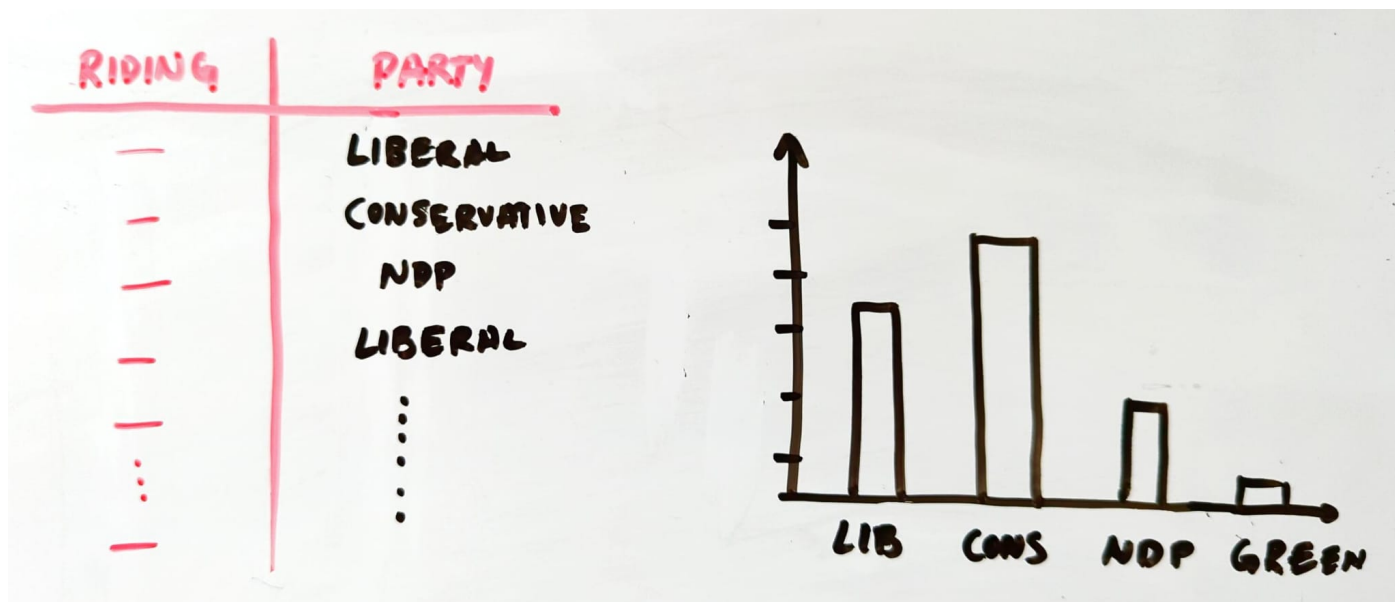 RIDING PARTY
LIBERAL
CONSERVATIVE
NDP
LIBERAL
LIB CONS NDP GREEN